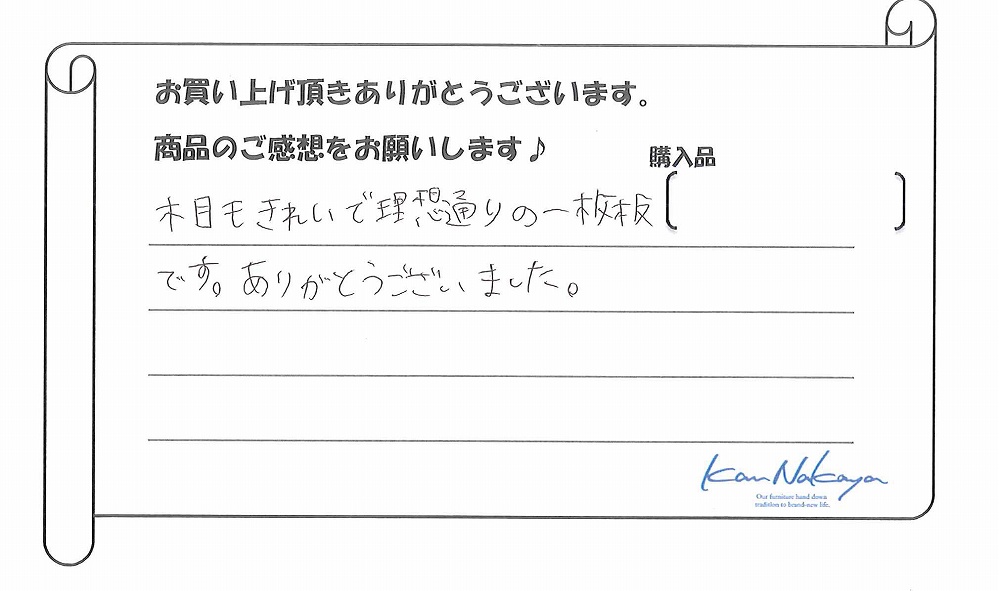 お買い上げ頂きありがとうございます。
商品のご感想をお願いします♪
購入品
木目もきれいで理想通りの一枚板
です。ありがとうございました。
Kan Nakaya
Our furniture hand down
tradition to brand-new life.